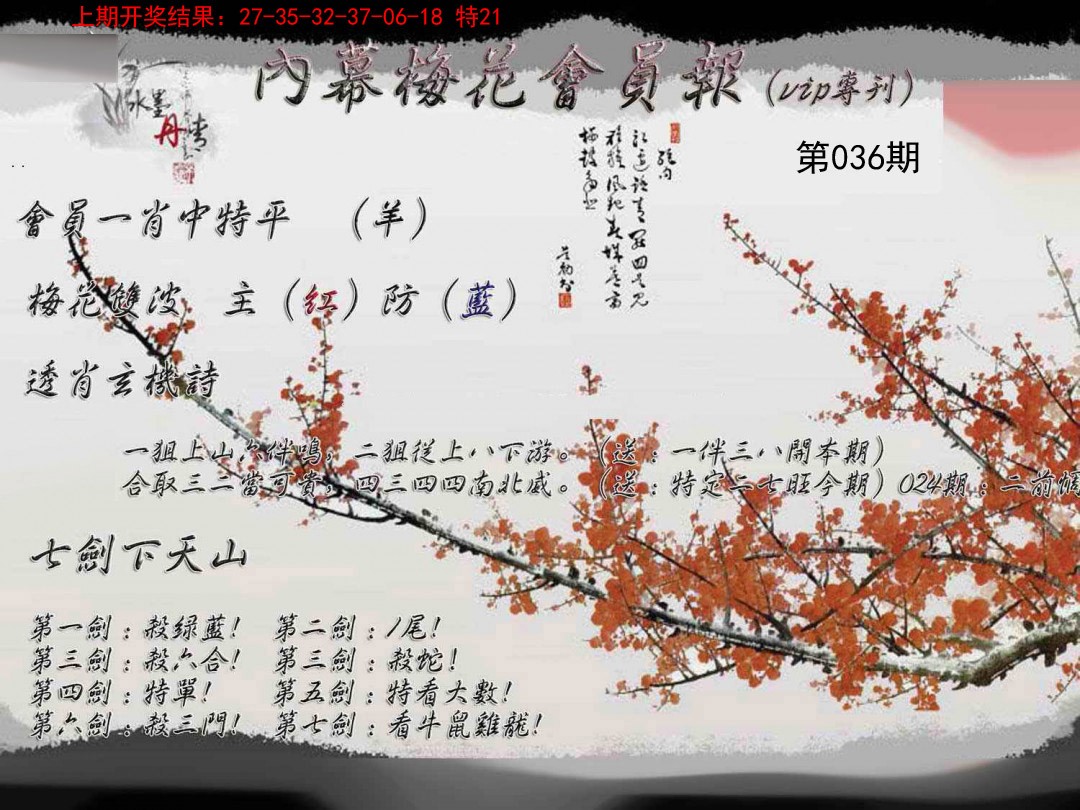 上期开奖结果：27-35-32-37-06-18 特21
內幕梅花會員報(vip專刊)
水墨
丹青
第036期
會員一肖中特平 （羊）
梅花雙波 主（红）防（藍）
透肖玄機詩
一狙上山六伴鳴，二狙從上八下游。（送：一伴三八開本期）
合取三二當可貴，四三四四南北威。（送：特定二七旺今期）024期：二前
七劍下天山
第一劍：殺绿藍! 第二劍：1尾!
第三劍：殺六合! 第三劍：殺蛇!
第四劍：特單! 第五劍：特看大數!
第六劍：殺三門! 第七劍：看牛鼠雞龍!